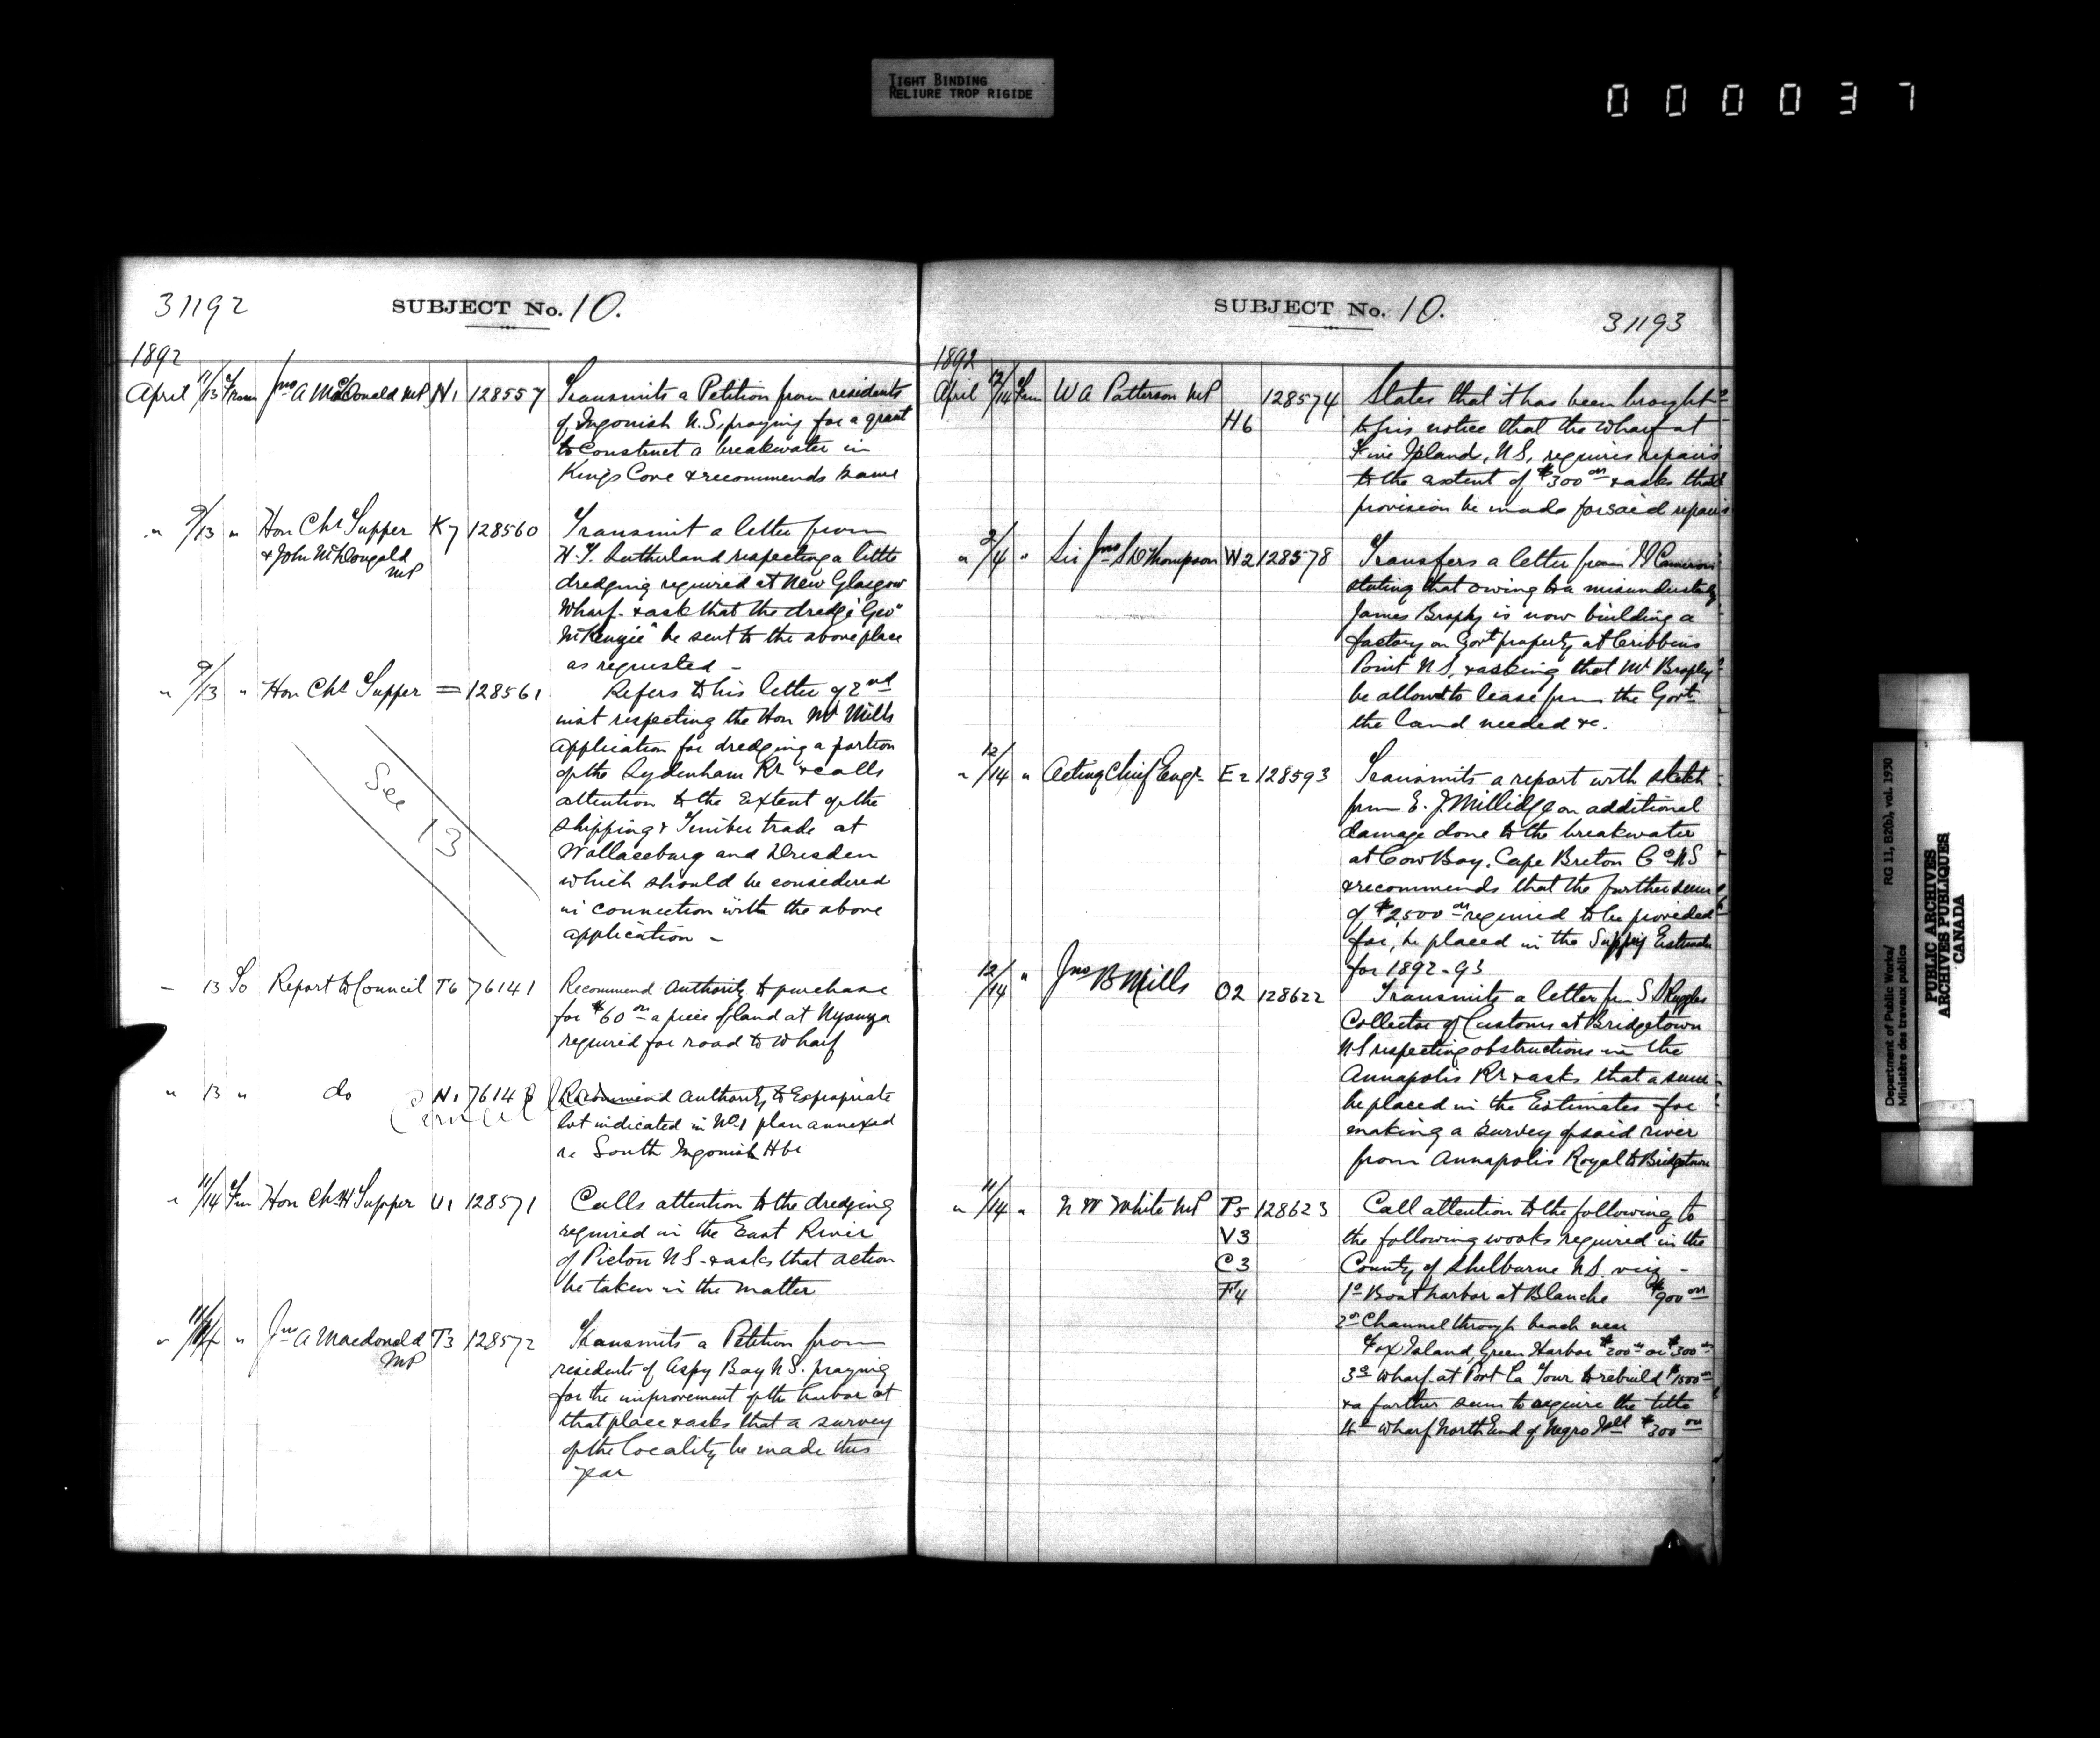 TIGHT BINDING
RELIURE TROP RIGIDE
000037
31192
SUBJECT No. 10.
1892
April 11/13 From Jno A McDonald MP N1 128557 Transmits a Petition from residents
of Ingonish N.S. praying for a grant
to construct a breakwater in
Kings Cove & recommends same
" 9/13 " Hon Chs Tupper K7 128560 Transmit a letter from
& John McDougald MP
H. T. Sutherland respecting a little
dredging required at New Glasgow
Wharf. & ask that the dredge "Geo
McKenzie" be sent to the above place
as requested -
" 9/13 " Hon Chs Tupper = 128561 Refers to his letter of 2nd
inst respecting the Hon Mr Mills
application for dredging a portion
of the Sydenham Rr & calls
attention to the extent of the
shipping & Timber trade at
Wallaceburg and Dresden
which should be considered
in connection with the above
application -
See 13
- 13 To Report to Council T6 76141 Recommend Authority to purchase
for $60 00 a piece of land at Nyanza
required for road to wharf
" 13 " do N1 76143 Recommend Authority to Expropriate
Cancel
lot indicated in No 1 plan annexed
re South Ingonish Hbr
" 11/14 Frm Hon Chs H Tupper U1 128571 Calls attention to the dredging
required in the East River
of Pictou N.S. & asks that action
be taken in the matter
" 11/14 " Jno A Macdonald MP T3 128572 Transmits a Petition from
residents of Aspy Bay N.S. praying
for the improvement of the harbor at
that place & asks that a survey
of the locality be made this
year
SUBJECT No. 10.
31193
1892
April 12/14 Frm W A Patterson MP 128574 States that it has been brought
H6 to his notice that the wharf at
Island, N.S, requires repairs
to the extent of $300 00 & asks that
provision be made for said repairs
" 9/14 " Sir Jno S D Thompson W2 128578 Transfers a letter from Cameron
stating that owing to a misunderstdg
James Brophy is now building a
factory on Govt property at Cribbins
Point N.S, & asking that Mr Brophy
be allowed to lease from the Govt
the land needed &c.
" 12/14 " Acting Chief Engr E2 128593 Transmits a report with sketch
from E. J Millidge on additional
damage done to the breakwater
at Cow Bay, Cape Breton Co NS
& recommends that the further sum
of $2500 00 required to be provided
for, be placed in the Suppy Estimates
for 1892-93
12/14 " Jno B Mills O2 128622 Transmits a letter frm S Ruggles
Collector of Customs at Bridgetown
NS respecting obstructions in the
Annapolis Rr & asks that a sum
be placed in the Estimates for
making a survey of said river
from Annapolis Royal to Bridgetown
" 11/14 " N W White MP P5 128623 Call attention to the following to
V3 the following works required in the
C3 County of Shelburne N.S. viz -
F4 1o Boat harbor at Blanche $900 00
2o Channel through beach near
Fox Island, Green Harbor $200 00 or $300 00
3o Wharf at Port La Tour to rebuild $1500 00
& a further sum to acquire the title
4o Wharf North End of Negro Isld $300 00
Department of Public Works/ RG 11, B2(b), vol. 1930
Ministère des travaux publics
PUBLIC ARCHIVES
ARCHIVES PUBLIQUES
CANADA